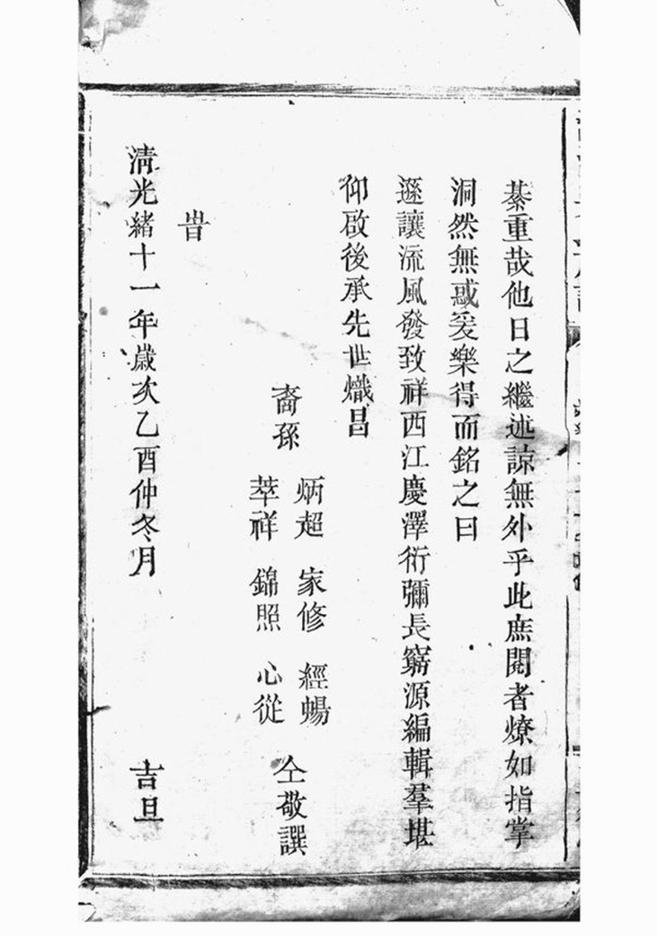 綦重哉他日之繼述諒無外乎此庶閱者燎如指掌
洞然無惑爰樂得而銘之曰
遜讓流風發致祥西江慶澤衍彌長窮源編輯羣堪
仰啟後承先世熾昌
裔孫
炳超 家修 經暢
萃祥 錦照 心從
仝敬譔
旹
清光緒十一年歲次乙酉仲冬月 吉旦